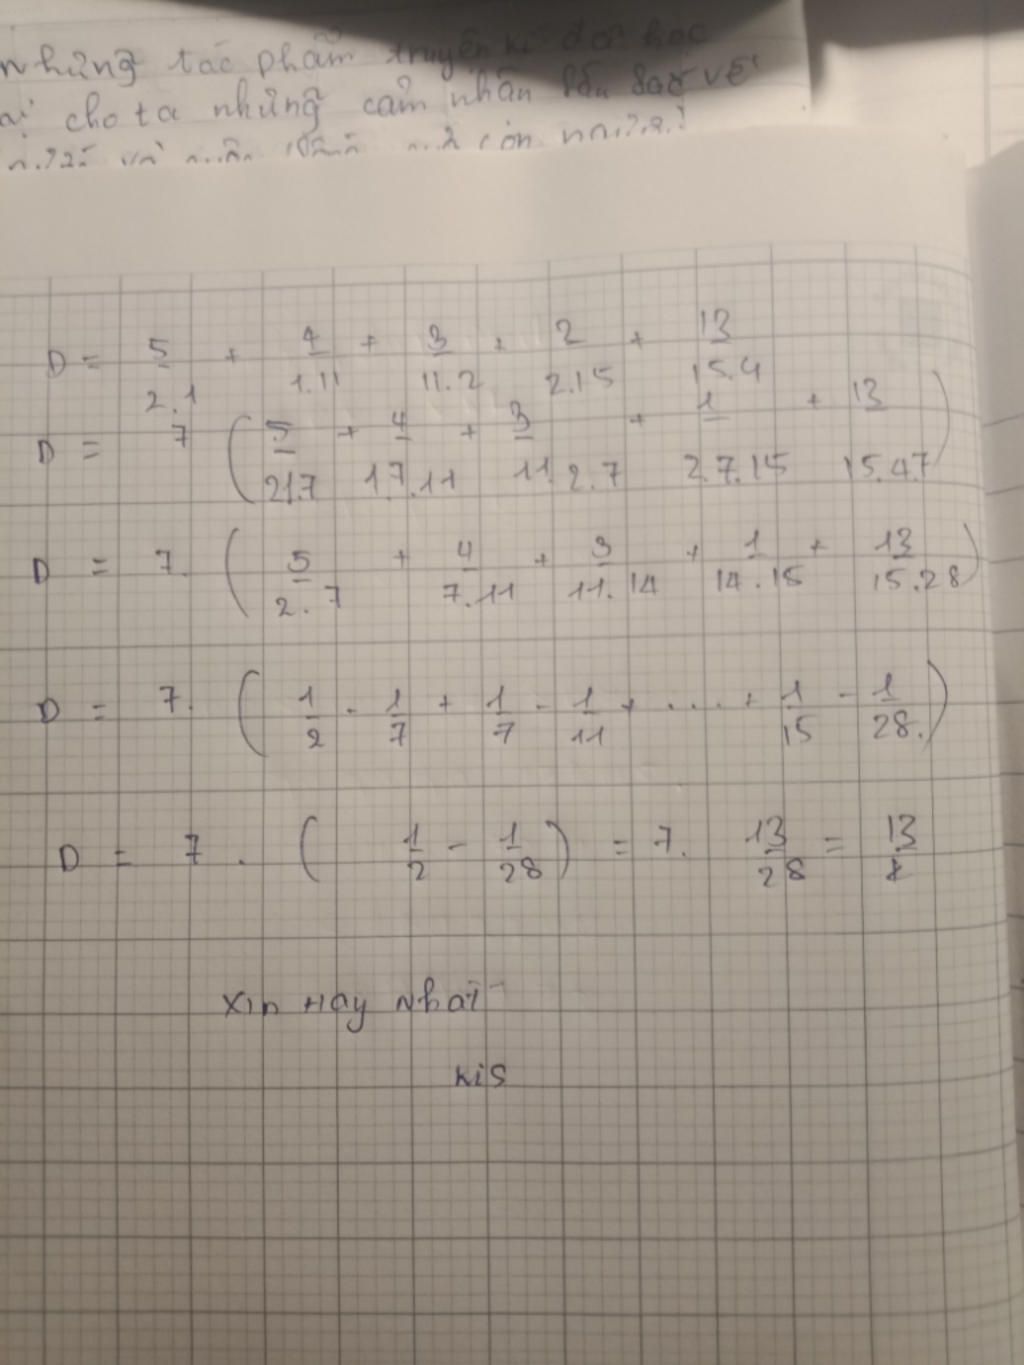 những tác phẩm truyện kí đã học
cho ta những cảm nhận sâu sắc về
D = 5/2.1 + 4/1.11 + 3/11.2 + 2/2.15 + 13/15.4
D = 7 ( 5/21.7 + 4/17.11 + 3/11.2.7 + 1/2.7.15 + 13/15.47 )
D = 7. ( 5/2.7 + 4/7.11 + 3/11.14 + 1/14.15 + 13/15.28 )
D = 7. ( 1/2 - 1/7 + 1/7 - 1/11 + .... + 1/15 - 1/28. )
D = 7 . ( 1/2 - 1/28 ) = 7. 13/28 = 13/
Xin Hay Nhất
kis